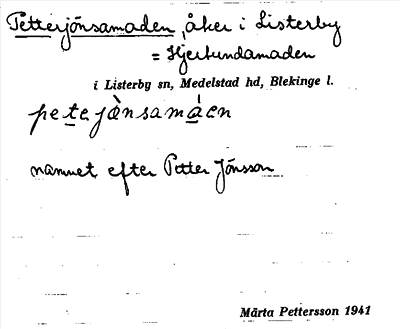 Petterjönsamaden, åker i Listerby
= Hjertundamaden
i Listerby sn, Medelstad hd, Blekinge l.
petejànsamáen
namnet efter Petter Jönsson
Märta Pettersson 1941